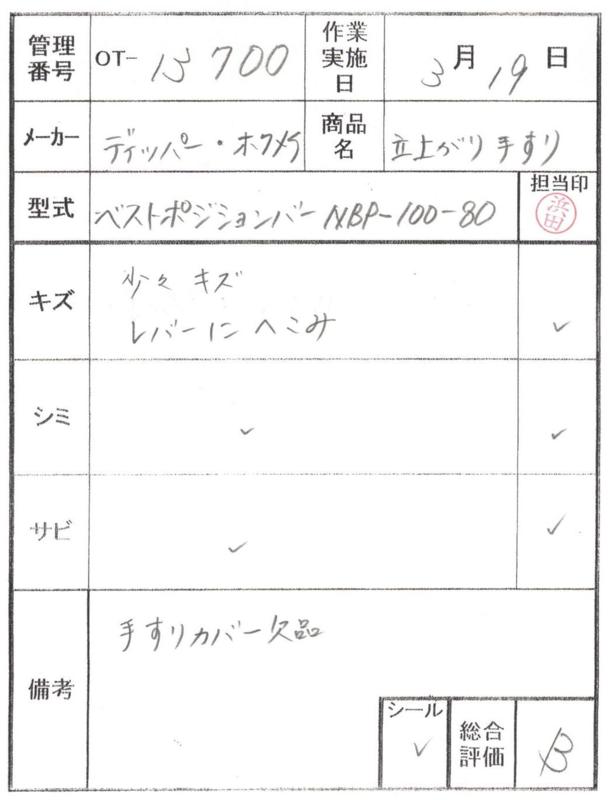 管理番号 OT- 13700 作業実施日 3月19日
メーカー ディッパー・ホクメイ 商品名 立上がり手すり
型式 ベストポジションバー NBP-100-80 担当印 浜田
キズ 少々キズ
レバーにへこみ ✓
シミ ✓ ✓
サビ ✓ ✓
備考 手すりカバー欠品
シール ✓ 総合評価 B